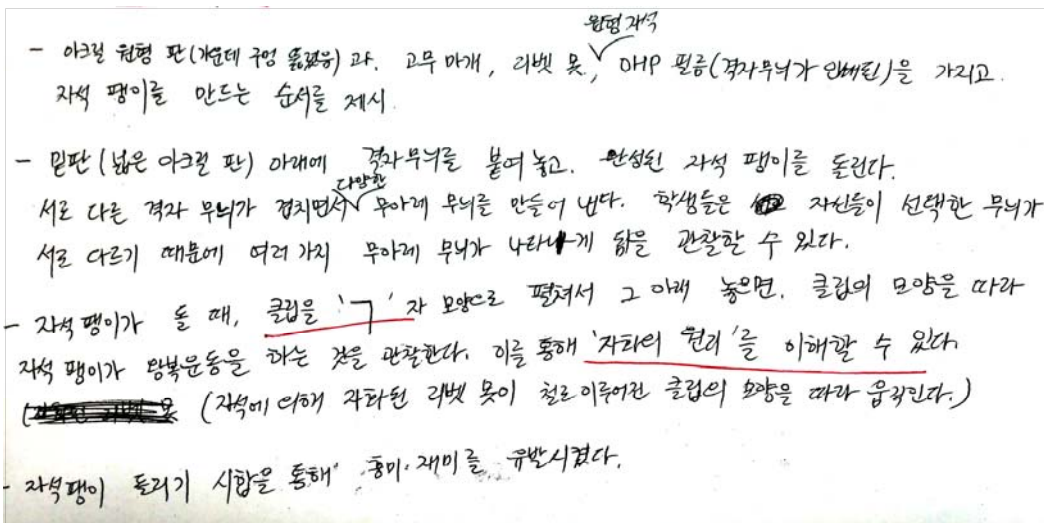 - 아크릴 원형 판(가운데 구멍 뚫렸음) 과, 고무 마개, 리벳 못, 원형 자석 OHP 필름(격자무늬가 인쇄된)을 가지고
자석 팽이를 만드는 순서를 제시.
- 밑판(넓은 아크릴 판) 아래에 격자무늬를 붙여 놓고. 완성된 자석 팽이를 돌린다.
서로 다른 격자 무늬가 겹치면서 다양한 무아레 무늬를 만들어 낸다. 학생들은 자신들이 선택한 무늬가
서로 다르기 때문에 여러 가지 무아레 무늬가 나타나게 됨을 관찰할 수 있다.
- 자석 팽이가 돌 때, 클립을 'ㄱ' 자 모양으로 펼쳐서 그 아래 놓으면. 클립의 모양을 따라
자석 팽이가 왕복운동을 하는 것을 관찰한다. 이를 통해 '자화의 원리'를 이해할 수 있다.
(자석에 의해 자화된 리벳 못이 철로 이루어진 클립의 모양을 따라 움직인다.)
- 자석팽이 돌리기 시합을 통해 흥미·재미를 유발시켰다.